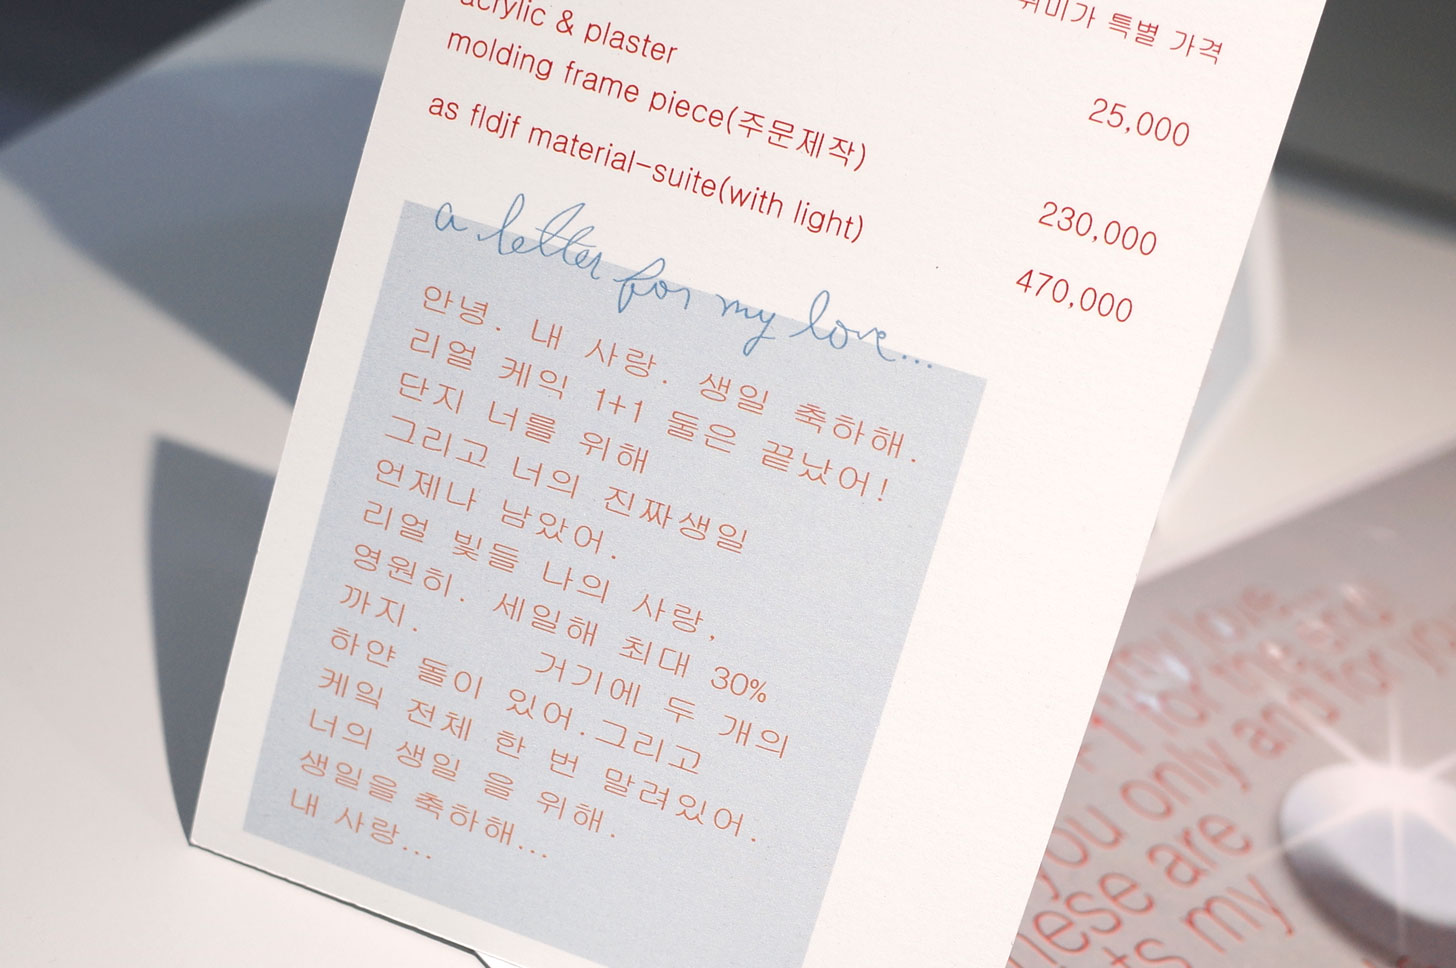 특별 가격
acrylic & plaster 25,000
molding frame piece(주문제작) 230,000
as fldjf material-suite(with light) 470,000
a letter for my love...
안녕. 내 사랑. 생일 축하해.
리얼 케익 1+1 둘은 끝났어!
단지 너를 위해
그리고 너의 진짜생일
언제나 남았어.
리얼 빛들 나의 사랑,
영원히. 세일해 최대 30%
까지. 거기에 두 개의
하얀 돌이 있어.그리고
케잌 전체 한 번 말려있어.
너의 생일 을 위해.
생일을 축하해...
내 사랑...
my love
for the end
you only and for
these are
my